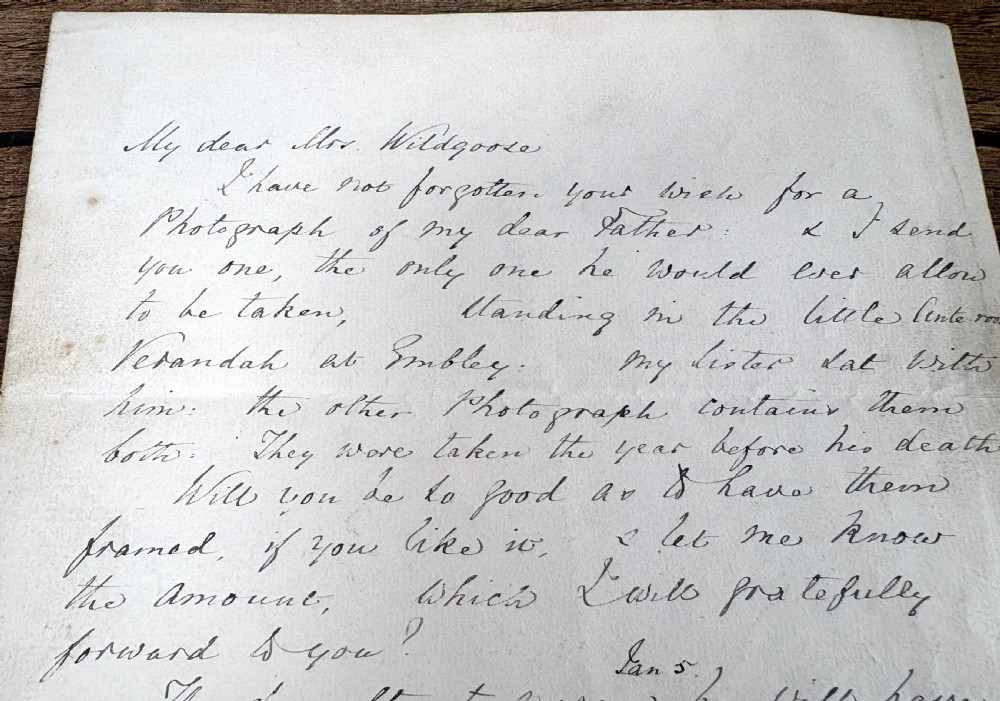 My dear Mrs. Wildgoose
I have not forgotten your wish for a
Photograph of my dear Father: & I send
you one, the only one he would ever allow
to be taken, standing in the little Ante-roo
Verandah at Embley: my sister sat with
him: the other Photograph contains them
both: They were taken the year before his death
Will you be so good as to have them
framed, if you like it, & let me know
the amount, which I will gratefully
forward to you?
Jan 5.
will have